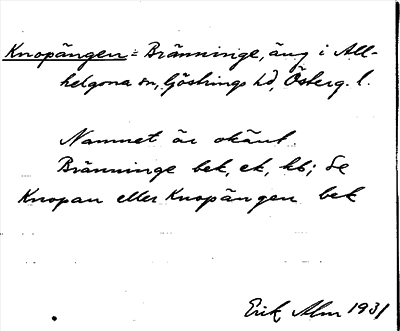 Knopängen = Bränninge, äng i All-
helgona sn, Göstrings hd, Österg. l.
Namnet är okänt.
Bränninge bek, ek, kb; Se
Knopan eller Knopängen bek
Erik Alm 1931